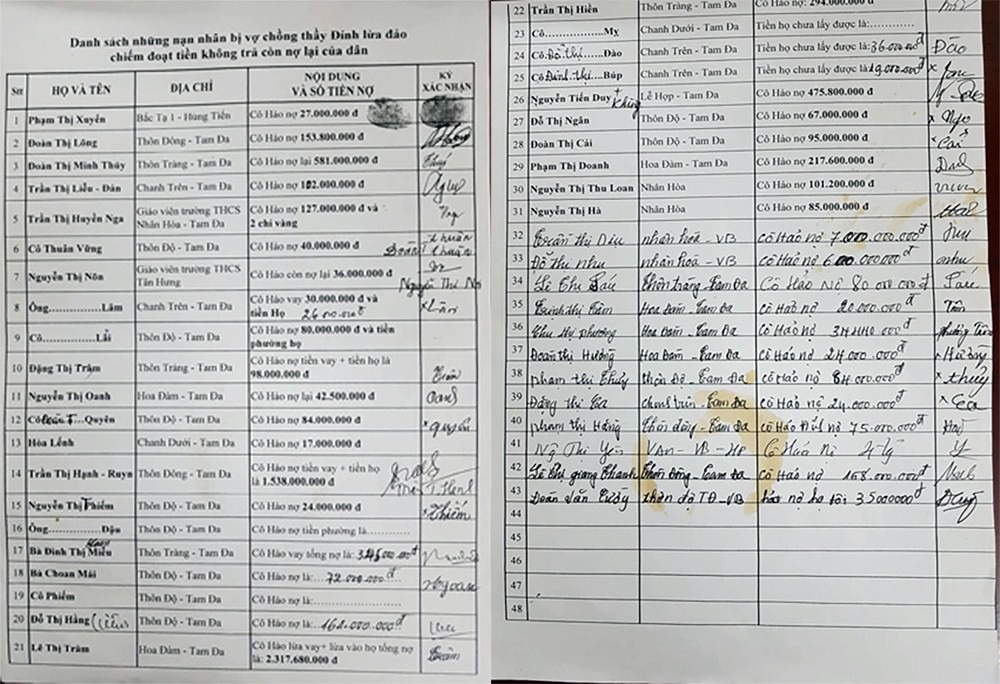 Danh sách những nạn nhân bị vợ chồng thầy Đính lừa đảo
chiếm đoạt tiền không trả còn nợ lại của dân
Stt HỌ VÀ TÊN ĐỊA CHỈ NỘI DUNG VÀ SỐ TIỀN NỢ KÝ XÁC NHẬN
1 Phạm Thị Xuyến Bắc Tạ 1 - Hùng Tiến Cô Hảo nợ 27.000.000 đ
2 Đoàn Thị Lõng Thôn Đông - Tam Đa Cô Hảo nợ 153.800.000 đ
3 Đoàn Thị Minh Thúy Thôn Tràng - Tam Đa Cô Hảo nợ lại 581.000.000 đ Thuý
4 Trần Thị Liễu - Đán Chanh Trên - Tam Đa Cô Hảo nợ 102.000.000 đ
5 Trần Thị Huyền Nga Giáo viên trường THCS Nhân Hòa - Tam Đa Cô Hảo nợ 127.000.000 đ và 2 chỉ vàng Nga
6 Cô Thuân Vững Thôn Độ - Tam Đa Cô Hảo nợ 40.000.000 đ
7 Nguyễn Thị Nôn Giáo viên trường THCS Tân Hưng Cô Hảo còn nợ lại 36.000.000 đ Nguyễn Thị
8 Ông...............Lâm Chanh Trên - Tam Đa Cô Hảo vay 30.000.000 đ và tiền Họ 26.000.000đ
9 Cô...............Lải Thôn Độ - Tam Đa Cô Hảo nợ 80.000.000 đ và tiền phường họ
10 Đặng Thị Trâm Thôn Tràng - Tam Đa Cô Hảo nợ tiền vay + tiền họ là 98.000.000 đ
11 Nguyễn Thị Oanh Hoa Đàm - Tam Đa Cô Hảo nợ lại 42.500.000 đ Oanh
12 Cô ...Quyên Thôn Độ - Tam Đa Cô Hảo nợ 84.000.000 đ Quyên
13 Hóa Lềnh Chanh Dưới - Tam Đa Cô Hảo nợ 17.000.000 đ
14 Trần Thị Hạnh - Ruyn Thôn Đông - Tam Đa Cô Hảo nợ tiền vay + tiền họ là 1.538.000.000 đ
15 Nguyễn Thị Thiêm Thôn Độ - Tam Đa Cô Hảo nợ 24.000.000 đ × Thiêm
16 Ông...............Dậu Thôn Độ - Tam Đa Cô Hảo nợ tiền phường là......
17 Bà Đinh Thị Miều Thôn Tràng - Tam Đa Cô Hảo vay tổng nợ là:
18 Bà Choan Mái Thôn Độ - Tam Đa Cô Hảo nợ là:....72.000.000đ
19 Cô Phiếm Thôn Độ - Tam Đa Cô Hảo nợ là:..................
20 Đỗ Thị Hằng Thôn Độ - Tam Đa Cô Hảo nợ là:...
21 Lê Thị Trâm Hoa Đàm - Tam Đa Cô Hảo lừa vay+ lừa vào họ tổng nợ là: 2.317.680.000 đ
22 Trần Thị Hiền Thôn Tràng - Tam Đa Cô Hảo nợ: 294.000.000 đ
23 Cô...............Mỵ Chanh Dưới - Tam Đa Tiền họ chưa lấy được là:............
24 Cô Đỗ Thị....Đào Chanh Trên - Tam Đa Tiền họ chưa lấy được là: 36.000.000đ Đào
25 Cô Đinh Thị....Búp Chanh Trên - Tam Đa Tiền họ chưa lấy được là 19.000.000đ ×
26 Nguyễn Tiến Duy + Lễ Hợp - Tam Đa Cô Hảo nợ 475.800.000 đ
27 Đỗ Thị Ngân Thôn Độ - Tam Đa Cô Hảo nợ 67.000.000 đ ×
28 Đoàn Thị Cải Thôn Độ - Tam Đa Cô Hảo nợ 95.000.000 đ × Cải
29 Phạm Thị Doanh Hoa Đàm - Tam Đa Cô Hảo nợ 217.600.000 đ
30 Nguyễn Thị Thu Loan Nhân Hòa Cô Hảo nợ 101.200.000 đ
31 Nguyễn Thị Hà Nhân Hòa Cô Hảo nợ 85.000.000 đ
32 Thị Dịu nhân hoà - VB cô Hảo nợ
33 Đỗ thị như nhân hoà - VB cô Hảo nợ như
34 Lê Thị Sáu Thôn tràng - Tam Đa Cô Hảo Nợ 80 000 000đ Sáu
35 Trịnh thị Tâm Hoa Đàm - Tam Đa cô Hảo nợ 20.000.000đ Tâm
36 Chu thị phương Hoa Đàm - Tam Đa cô Hảo nợ
37 Đoàn thị Hường Hoa Đàm - Tam Đa cô Hảo nợ 24.000.000đ × Hường
38 phạm thị Thuỷ thôn Độ - Tam Đa cô Hảo nợ 84.000.000đ × thuỷ
39 Đặng thị - Tam Đa cô Hảo nợ 24.000.000đ ×
40 phạm thị Hằng Thôn đông - Tam Đa cô Hảo nợ 75.000.000đ
41 Ngô Thị Yến - VB - HP nợ
42 Lê Thị giang Thanh Thôn Đông - Tam Đa cô Hảo nợ 168.000.000đ
43 Đoàn Văn thôn độ TĐ - VB hảo nợ họ tôi 35000000đ
44
45
46
47
48